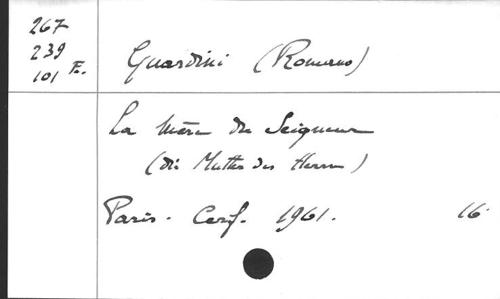 267
239
101 E.
Guardini (Romano)
La Mère du Seigneur
(die Mutter des Herrn)
Paris. Cerf. 1961. 16°